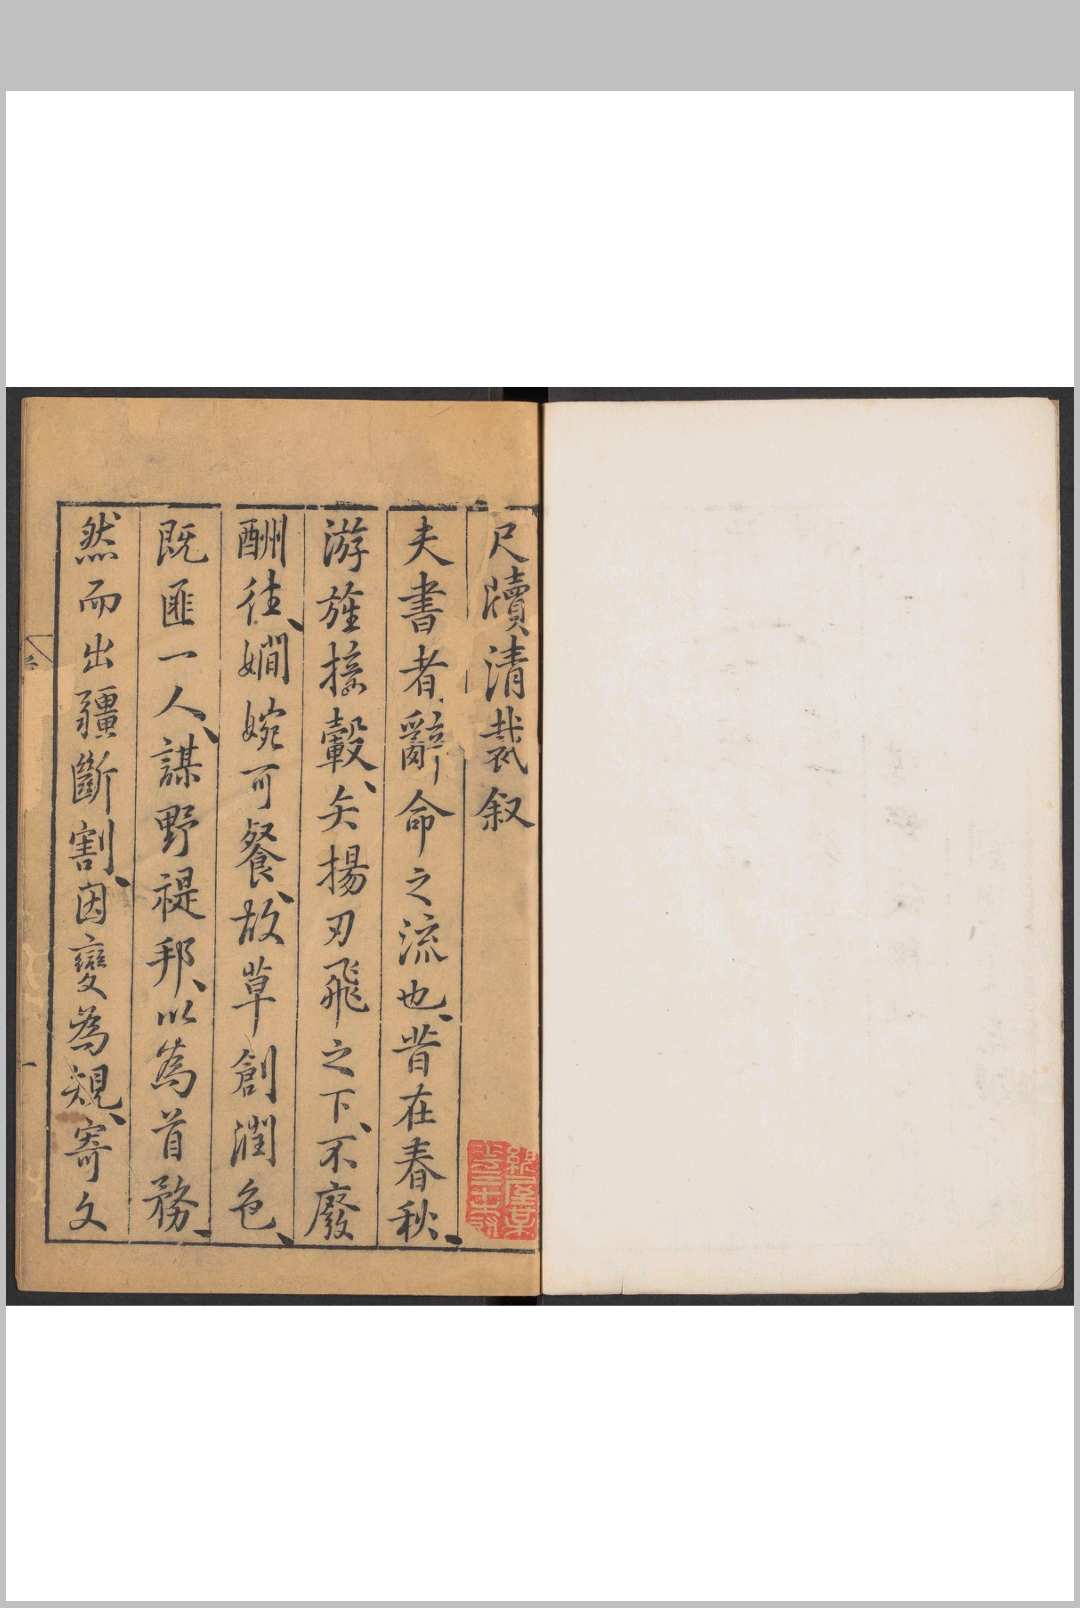 尺牘清裁叙
夫書者辭命之流也、昔在春秋、
游旌接轂、矢揚刃飛之下、不廢
酬徃、嫺婉可餐、故草創潤色、
既匪一人、謀野禔邦、以為首務、
然而出疆斷割、因變為規、寄文